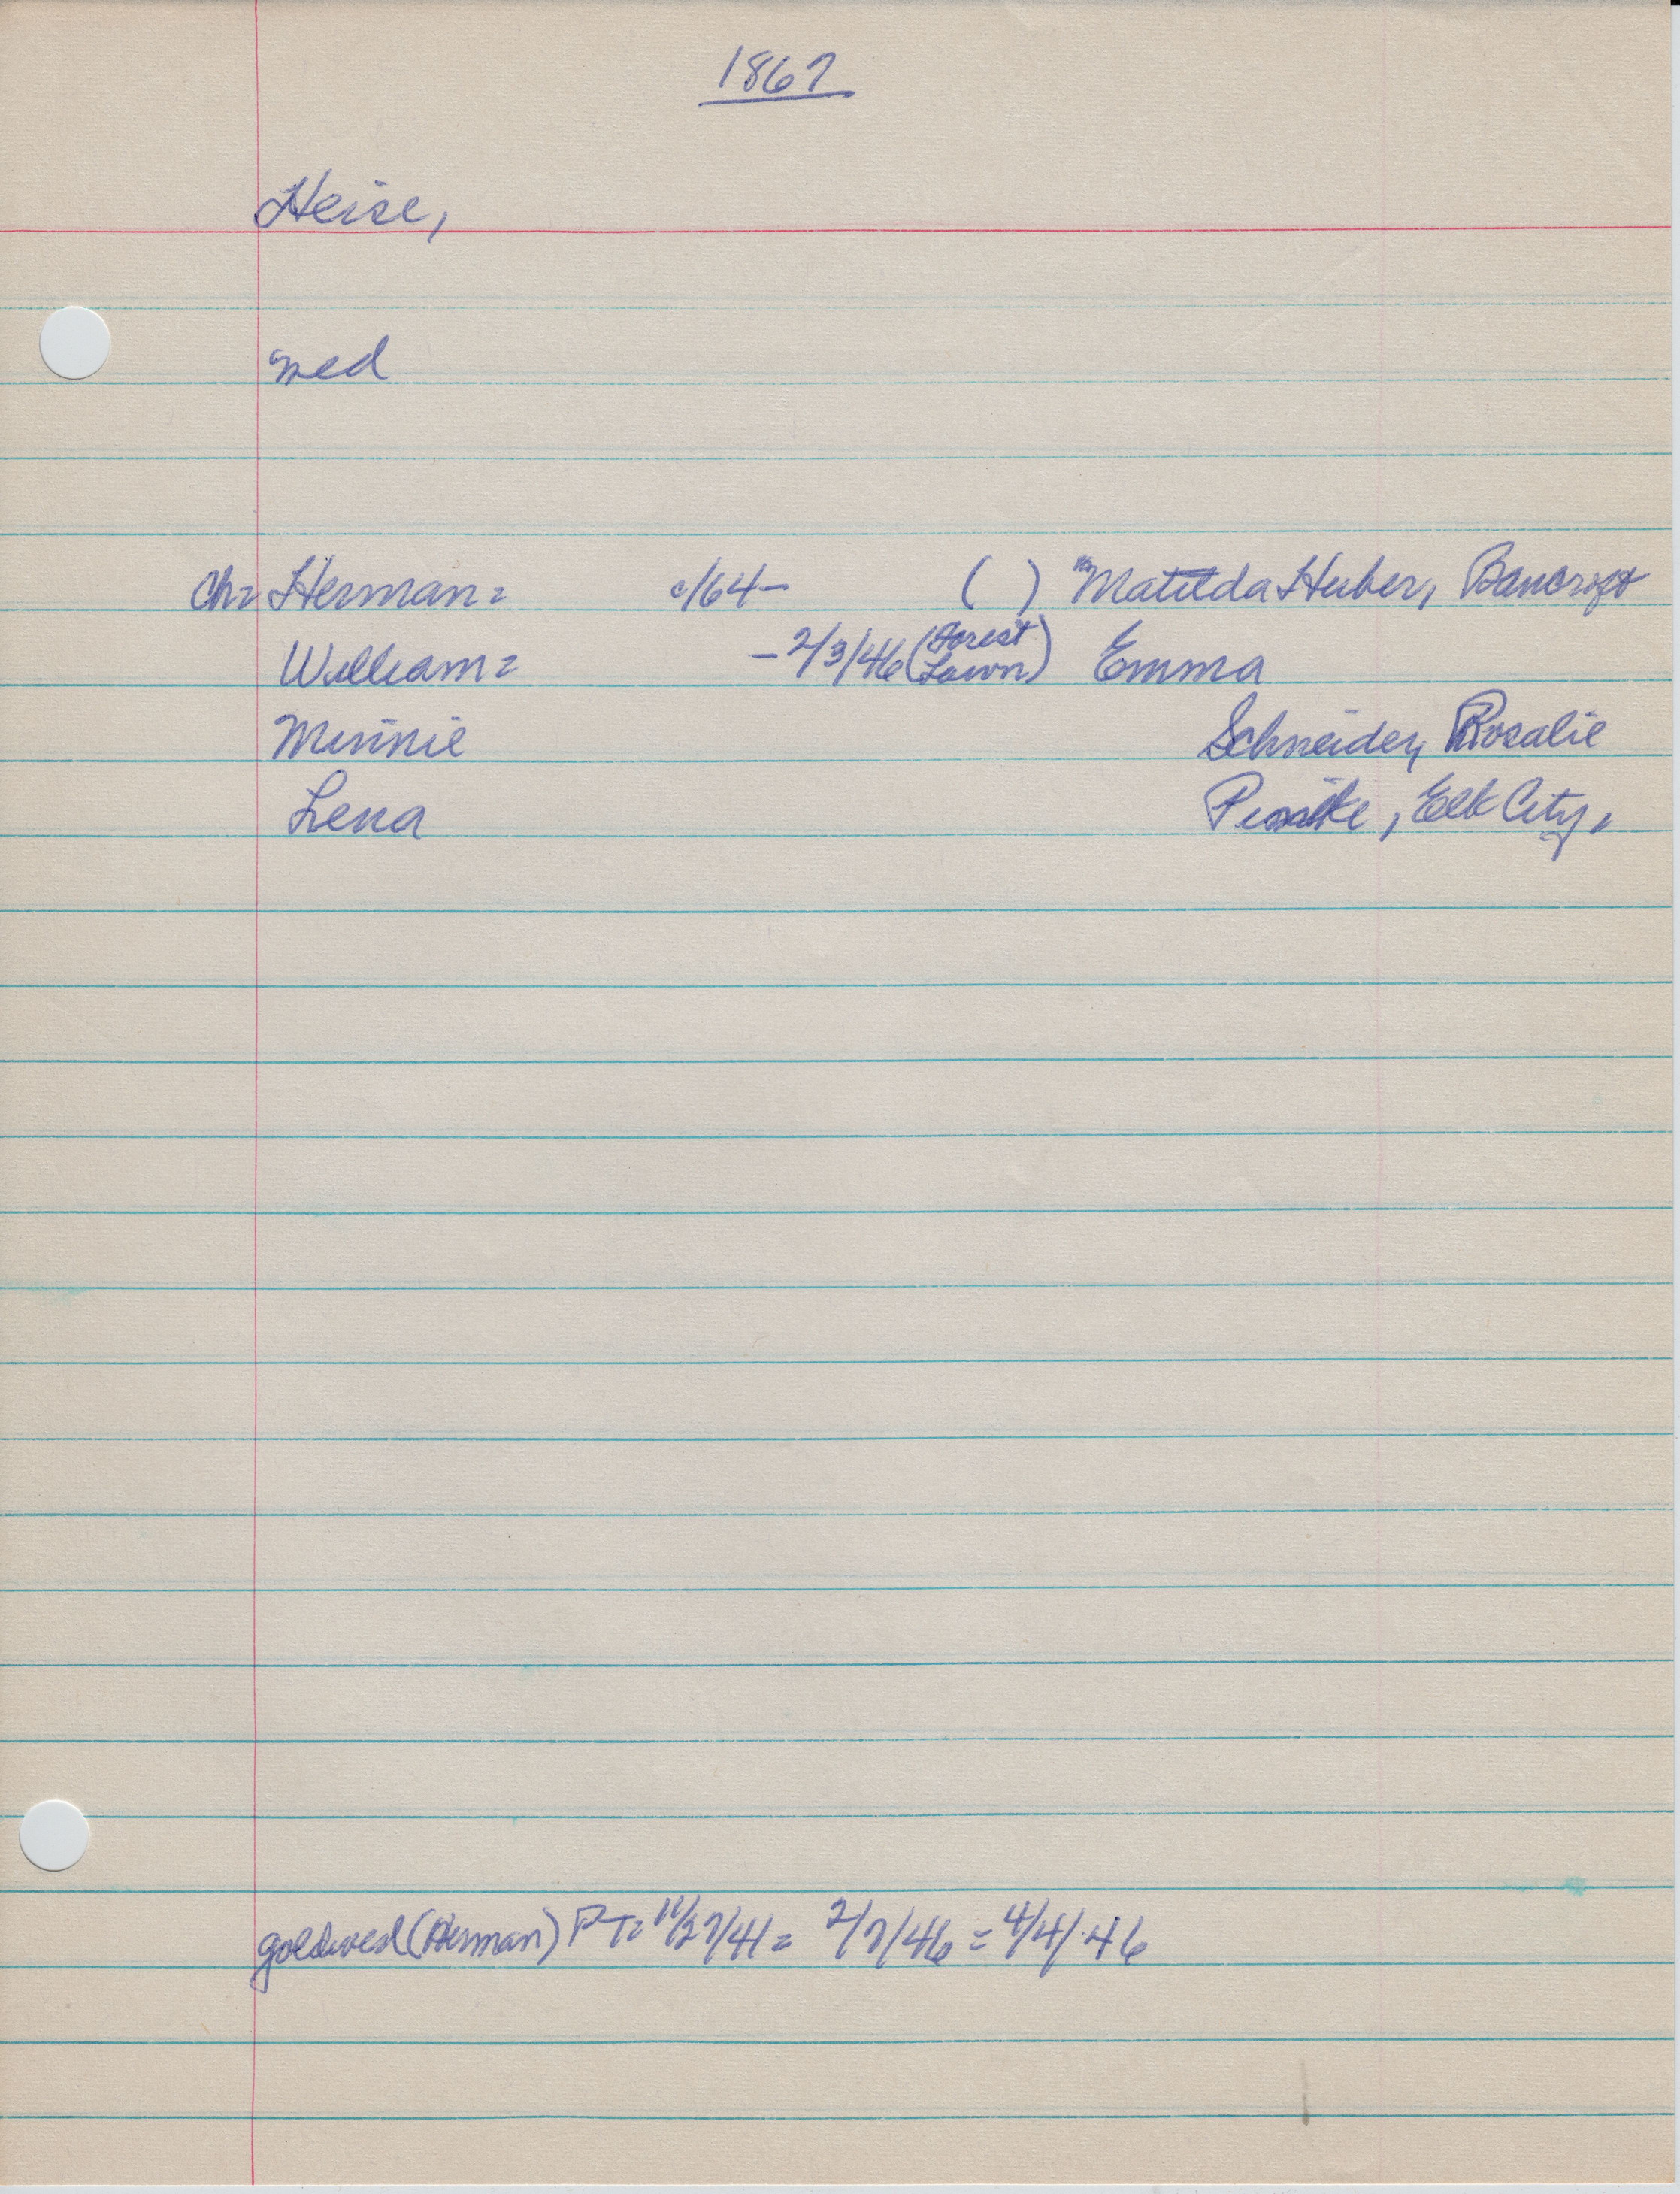 1867
Heise,
med
ch= Herman= c/64- ( ) Matilda Huber, Bancroft
William= -2/3/46 (Forest Lawn) Emma
Minnie Schneider, Rosalie
Lena , Elk City,
goldwed (Herman) PT= 11/27/41= 2/7/46 = 4/4/46